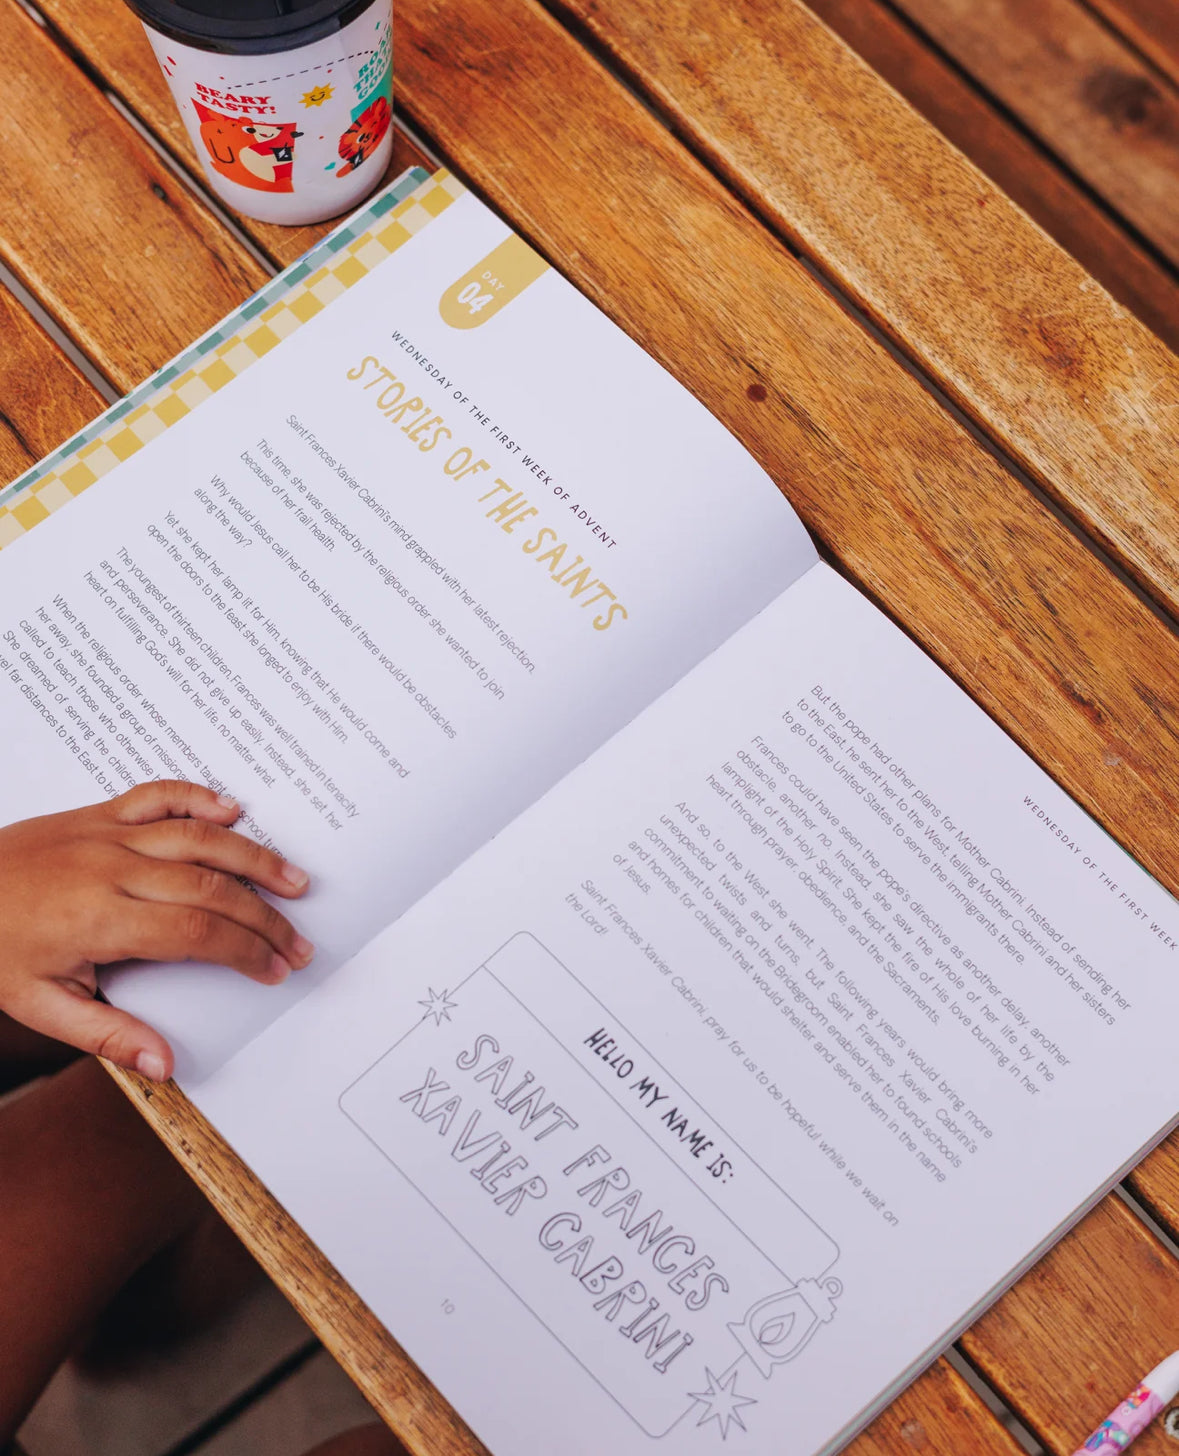 BEARY
TASTY!
DAY
04
WEDNESDAY OF THE FIRST WEEK OF ADVENT
STORIES OF THE SAINTS
Saint Frances Xavier Cabrini's mind grappled with her latest rejection.
This time, she was rejected by the religious order she wanted to join
because of her frail health.
Why would Jesus call her to be His bride if there would be obstacles
along the way?
Yet she kept her lamp lit for Him, knowing that He would come and
open the doors to the feast she longed to enjoy with him.
The youngest of thirteen children, Frances was well trained in tenacity
and perseverance. She did not give up easily. Instead, she set her
heart on fulfilling God's will for her life, no matter what.
When the religious order whose members taught at school turns
her away, she founded a group of missionar
called to teach those who otherwise
She dreamed of serving the childre
far distances to the East to bri
WEDNESDAY OF THE FIRST WEEK
But the pope had other plans for Mother Cabrini. Instead of sending her
to the East, he sent her to the West, telling Mother Cabrini and her sisters
to go to the United States to serve the immigrants there.
Frances could have seen the pope's directive as another delay, another
obstacle, another no. Instead, she saw the whole of her life by the
lamplight of the Holy Spirit. She kept the fire of His love burning in her
heart through prayer, obedience, and the Sacraments.
And so, to the West she went. The following years would bring more
unexpected twists and turns, but Saint Frances Xavier Cabrini's
commitment to waiting on the Bridegroom enabled her to found schools
and homes for children that would shelter and serve them in the name
of Jesus.
Saint Frances Xavier Cabrini, pray for us to be hopeful while we wait on
the Lord!
HELLO MY NAME IS:
SAINT FRANCES
XAVIER CABRINI
10